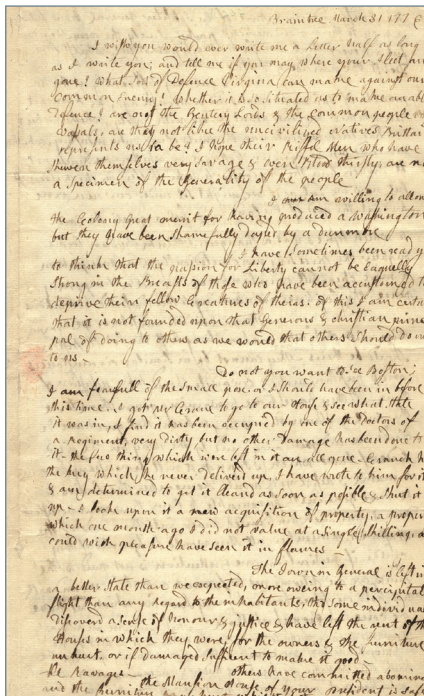 Braintree March 31 177
I wish you would ever write me a Letter half as long
as I write you; and tell me if you may where your Fleet are
gone? What sort of Defence Virginia can make against our
common Enemy? Whether it is so situated as to make an able
Defence? are not the Gentery Lords & the common people
vassals, are they not like the uncivilized Natives Brittain
represents us to be? I hope their Riffel Men who have
shewen themselves very savage & even Blood thirsty; are not
a specimen of the Generality of the people
I am willing to allow
the Colony great merit for having produced a Washington
but they have been shamefully duped by a Dunmore
I have sometimes been ready
to think that the passion for Liberty cannot be Eaquelly
strong in the Breasts of those who have been accustomed to
deprive their fellow Creatures of theirs. of this I am certain
that it is not founded upon that generous & christian princi
pal of doing to others as we would that others should do un
to us
Do not you want to see Boston;
I am fearfull of the small pox, or I should have been in before
this time. I got Mr Crane to go to our House & see what state
it was in, I find it has been occupied by one of the doctors of
a Regiment, very dirty but no other damage has been done to
it. the few things which were left in it are all gone. Cranch has
the key which he never deliverd up, I have wrote to him for it
& am determined to get it cleand as soon as posible & shut it
up I look upon it a new acquisition of property, a property
which one month ago I did not value at a single shilling, &
could with pleasure have seen it in flames
The Town in General is left in
a better state than we expected, more oweing to a percipitate
flight than any Regard to the inhabitants, tho some individuals
discoverd a sense of honour & justice & have left the rent of the
Houses in which they were, for the owners & the furniture
unhurt, or if damaged sufficent to make it good
others have committed abominable
Ravages
the Mansion House of your President is safe
and the furniture